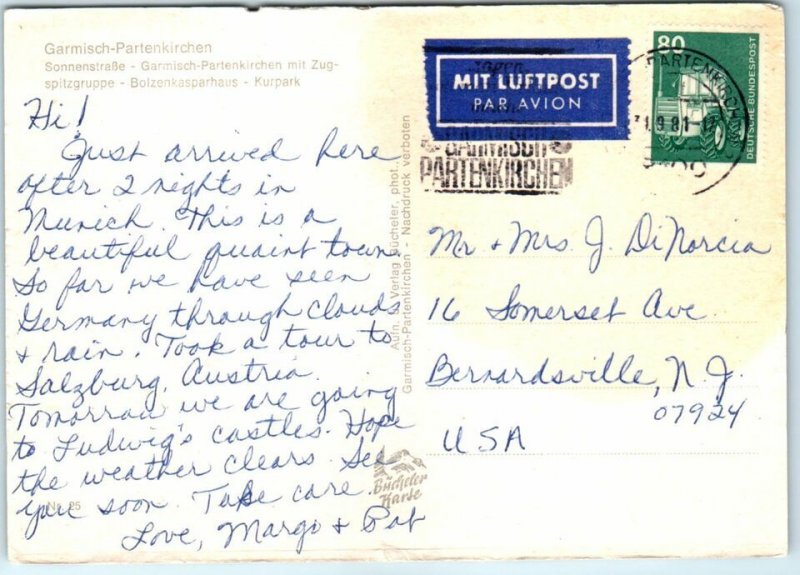 Garmisch-Partenkirchen
Sonnenstraße - Garmisch-Partenkirchen mit Zug-
spitzgruppe - Bolzenkasparhaus - Kurpark
Hi!
Just arrived here
after 2 nights in
Munich. This is a
beautiful quaint town.
So far we have seen
Germany through clouds
& rain. Took a tour to
Salzburg, Austria.
Tomorrow we are going
to Ludwig's castles. Hope
the weather clears. See
you soon. Take care.
Love, Margo & Pat
Nr. 25
Aufn. u. Verlag Bücheler, phot.
Garmisch-Partenkirchen - Nachdruck verboten
Bücheler
Karte
MIT LUFTPOST
PAR AVION
GARMISCH
PARTENKIRCHEN
80
DEUTSCHE BUNDESPOST
PARTENKIRCH
9.81
Mr & Mrs. J. DiNarcia
16 Somerset Ave.
Bernardsville, N.J.
07924
USA